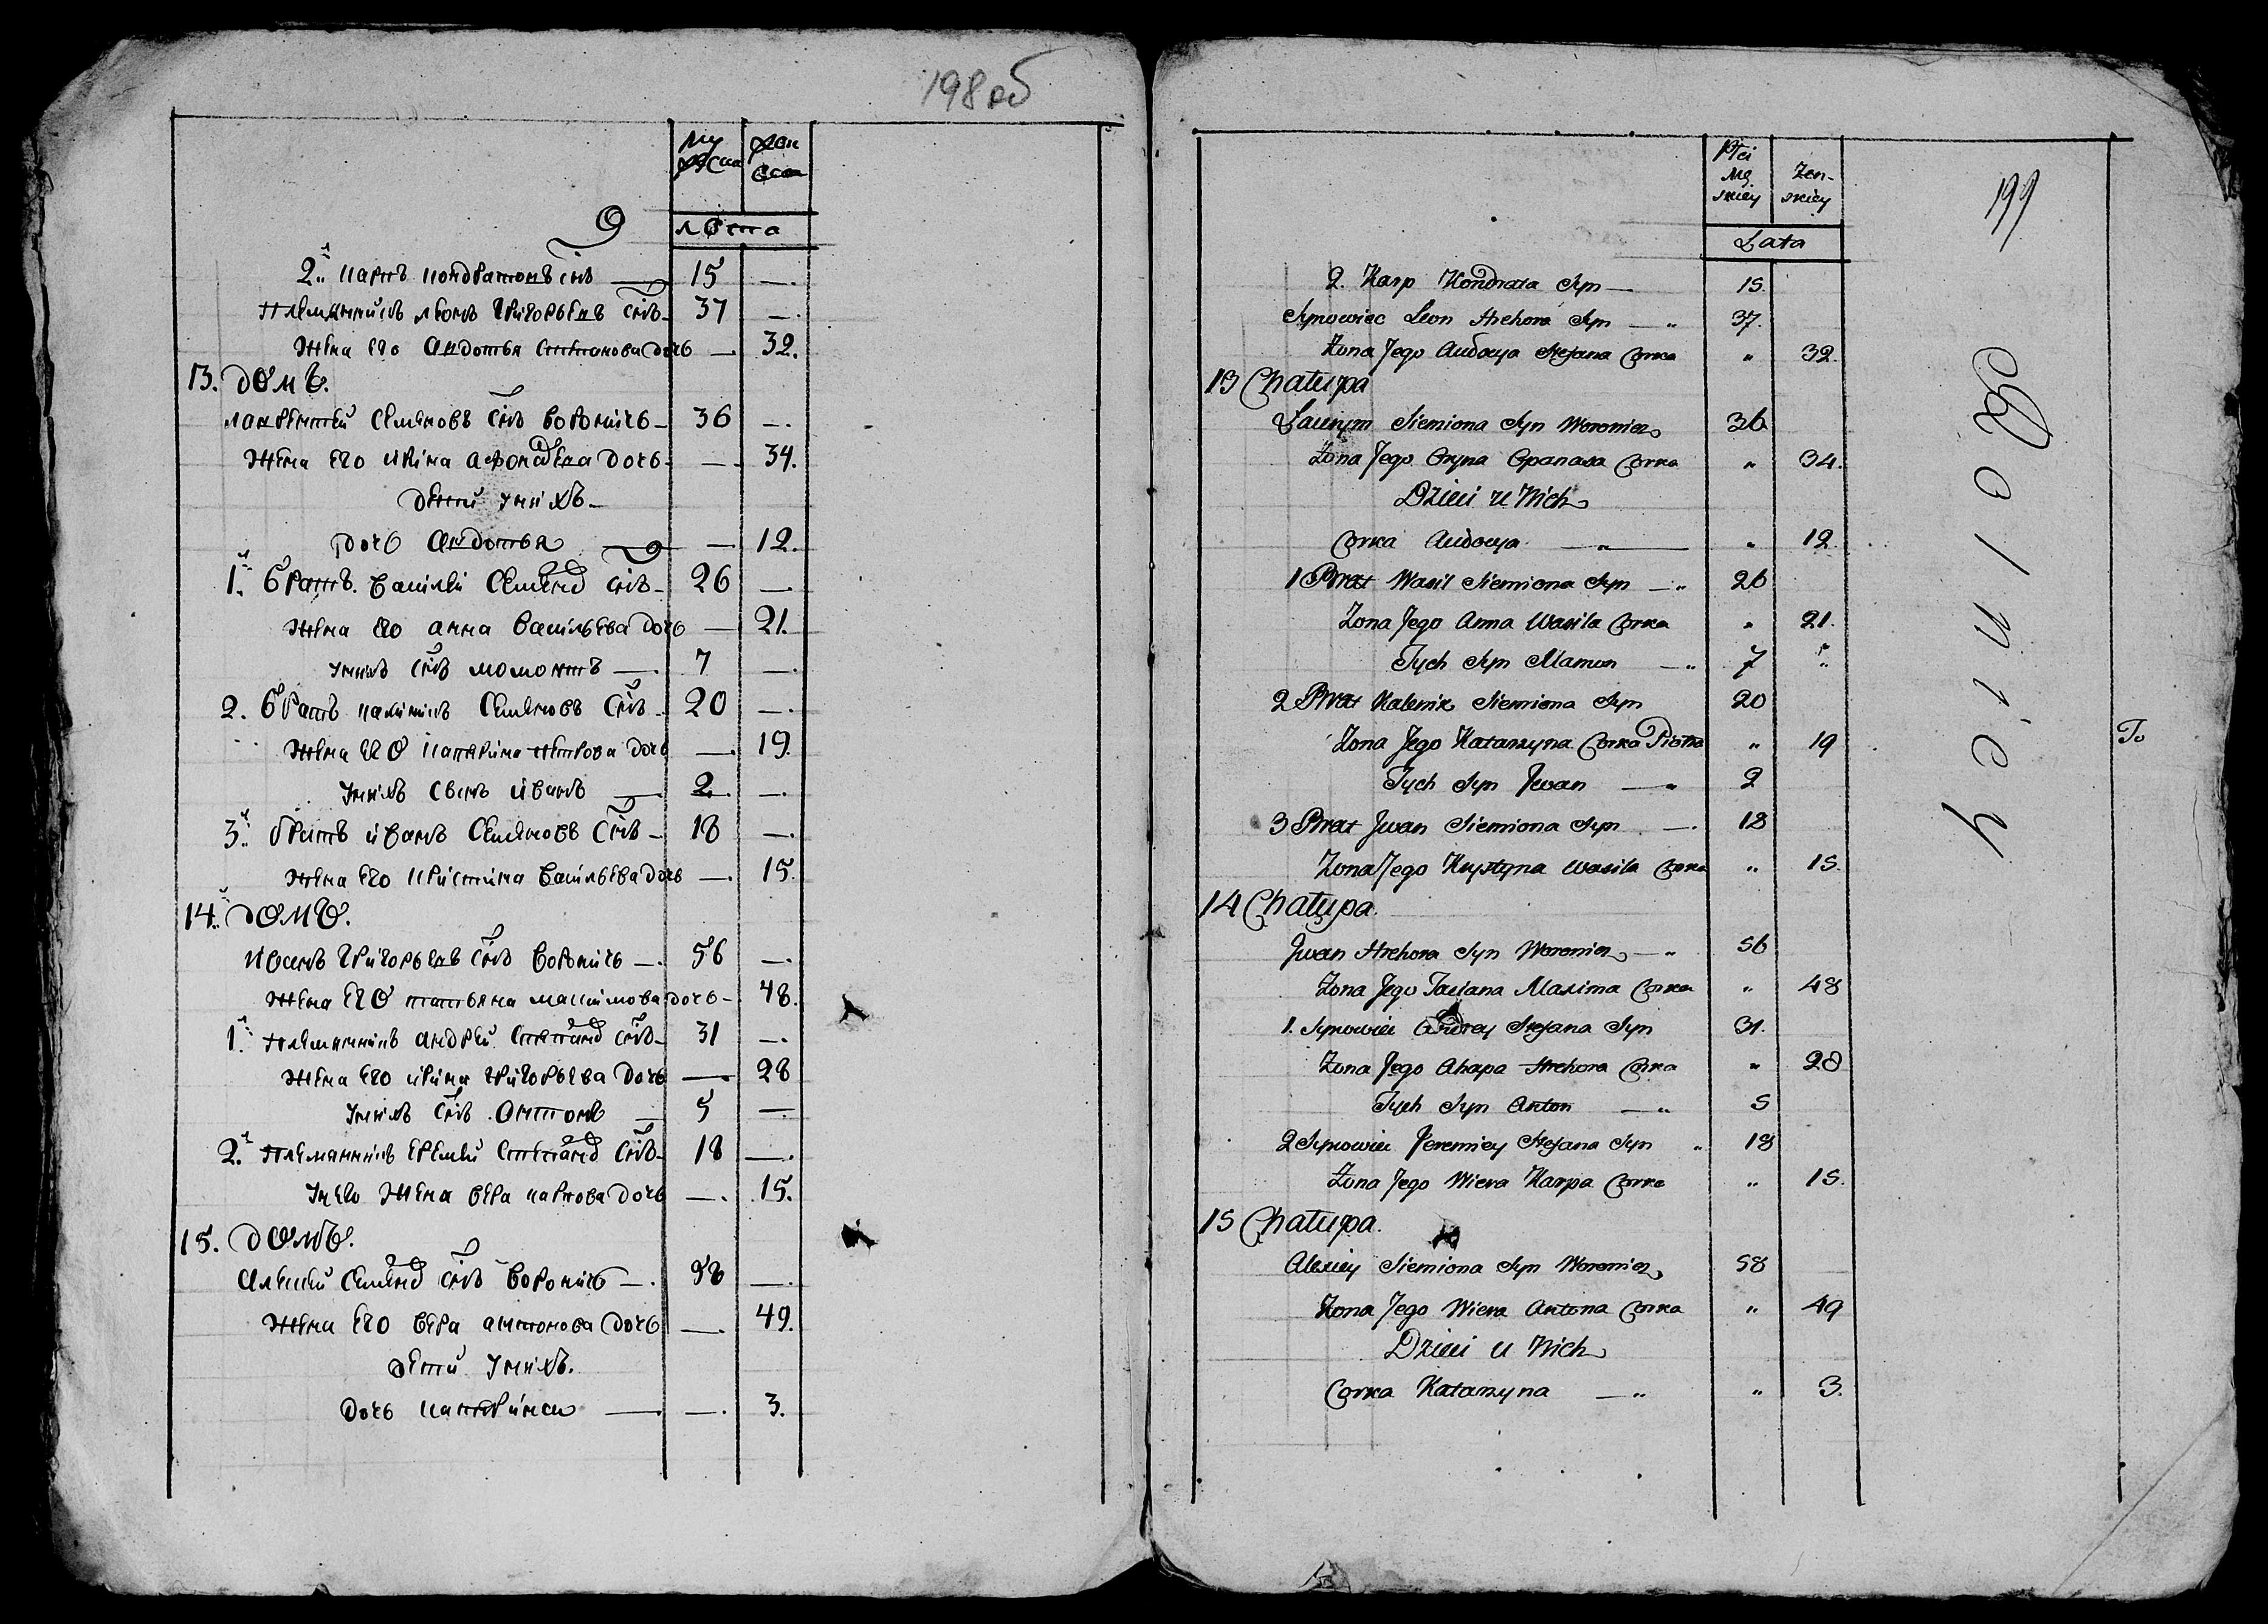 198 об
му жска
жен ска
лѣта
2й карпъ кондратовъ снъ — 15 —.
племянникъ леонъ григорьевъ снъ — 37 —.
жена его авдотья степанова дочь — 32.
13. домъ.
лаврентей семеновъ снъ вороничь — 36 —.
жена его ирина афонасьева дочь — — 34.
дети унихъ —
дочь авдотья — — 12.
1й братъ василей семеновъ снъ — 26 —.
жена его анна васильева дочь — 21.
унихъ снъ момонтъ — 7 —.
2. братъ калиникъ семеновъ снъ — 20 —.
жена его катерина петрова дочь — 19.
унихъ сынъ иванъ — 2. —.
3й братъ иванъ семеновъ снъ — 18 —.
жена его кристина васильева дочь — 15.
14й домъ.
иванъ григорьевъ снъ вороничь —. 56 —.
жена его татьяна максимова дочь — 48.
1й племянникъ андрей степановъ снъ — 31 —.
жена его ирина григорьева дочь — 28
унихъ снъ антонъ — 5 —.
2й племянникъ еремей степановъ снъ — 18 —.
унево жена вера карпова дочь —. 15.
15. домъ.
алексей семеновъ снъ вороничь —. 58 —.
жена его вера антонова дочь —. 49.
дети унихъ.
дочь катерина —. —. 3.
199
Płci Mę skiey
Zen- skiey
Lata
2. Karp Kondrata Syn — 15.
Synowiec Leon Hrehora Syn — „ 37.
Zona Jego Audocya Stefana Corka „ 32.
13 Chałupa
Laurym Siemiona Syn Woronicz 36
Zona Jego Oryna Opanasa Corka „ 34.
Dzieci u Nich
Corka Audocya — „ — „ 12.
1 Brat Wasil Siemiona Syn — „ 26
Zona Jego Anna Wasila Corka „ 21.
Tych Syn Mamon — „ 7 „
2 Brat Kalenik Siemiona Syn 20
Zona Jego Katarzyna Corka Piotra „ 19
Tych Syn Jwan — „ 2
3 Brat Jwan Siemiona Syn —. 18
Zona Jego Krystyna Wasila Corka „ 15.
14 Chałupa.
Jwan Hrehora Syn Woronicz — „ 56
Zona Jego Taciana Maxima Corka „ 48
1. Synowiec Andrey Stefana Syn 31.
Zona Jego Ahapa Hrehora Corka „ 28
Tych Syn Anton — „ 5
2 Synowiec Jeremiey Stefana Syn „ 18
Zona Jego Wiera Karpa Corka „ 15.
15 Chałupa.
Alexiey Siemiona Syn Woronicz 58
Zona Jego Wiera Antona Corka „ 49
Dzieci u Nich
Corka Katarzyna — „ „ 3.
Rolnicy
To